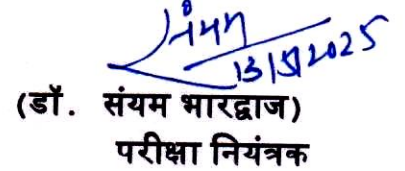 संयम
13/5/2025
(डॉ. संयम भारद्वाज)
परीक्षा नियंत्रक